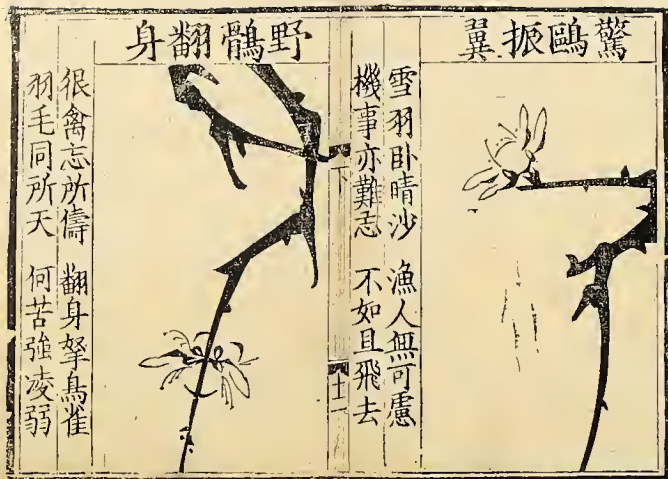 驚鷗振翼
雪羽卧晴沙 漁人無可慮
機事亦難忘 不如且飛去
下
十一
野鶻翻身
很禽忘所儔 翻身拏鳥雀
羽毛同所天 何苦強凌弱